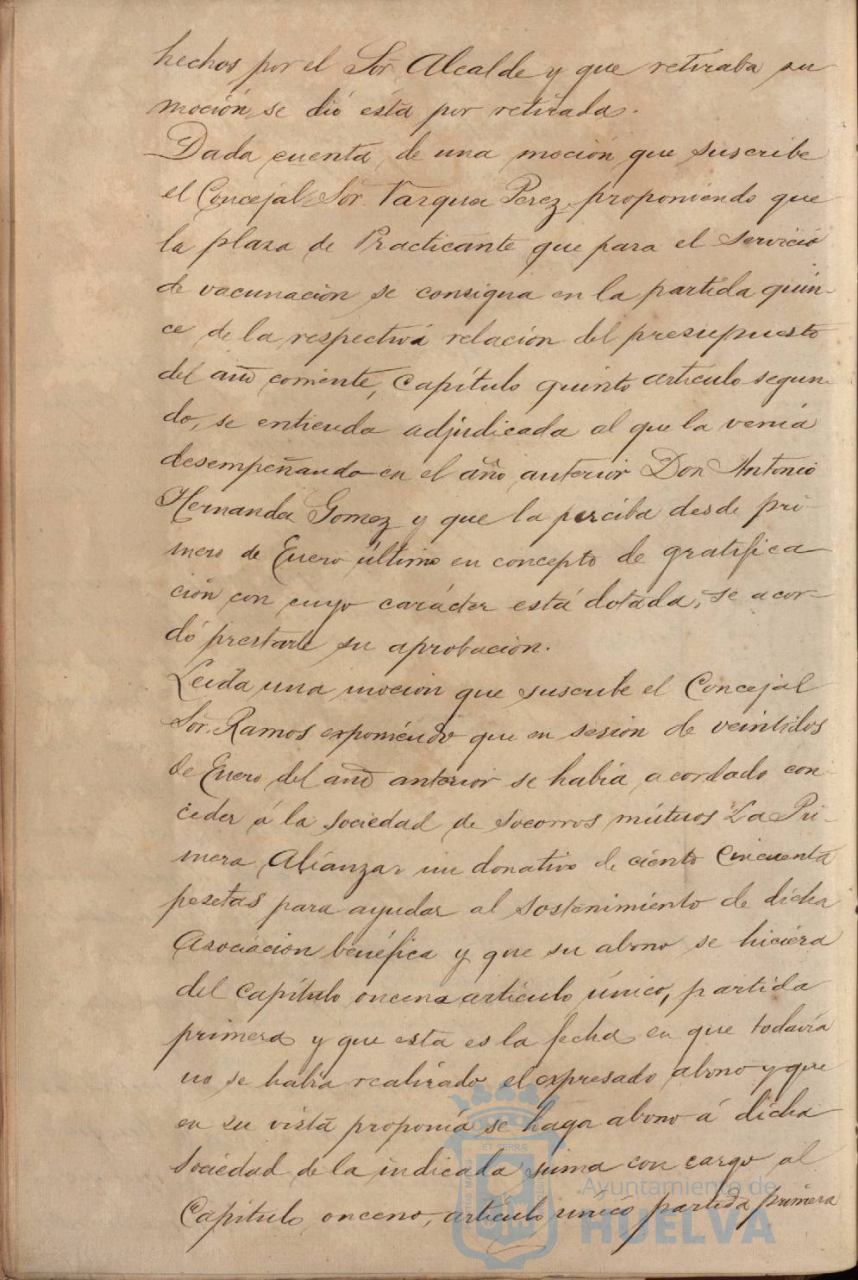 hechos por el Sor. Alcalde y que retiraba su
moción, se dió ésta por retirada.
Dada cuenta de una moción que suscribe
el Concejal Sor. Vazquez Perez proponiendo que
la plaza de Practicante que para el servicio
de vacunación se consigna en la partida quin-
ce de la respectiva relación del presupuesto
del año corriente, Capítulo quinto artículo segun-
do, se entienda adjudicada al que la venía
desempeñando en el año anterior Don Antonio
Hernandez Gomez y que la perciba desde pri-
mero de Enero último en concepto de gratifica-
ción con cuyo carácter está dotada, se acor-
dó prestarle su aprobación.
Leida una moción que suscribe el Concejal
Sor. Ramos exponiendo que en sesión de veintidos
de Enero del año anterior se había acordado con-
ceder á la sociedad de socorros mútuos La Pri-
mera Alianza un donativo de ciento cincuenta
pesetas para ayudar al sostenimiento de dicha
Asociación benéfica y que su abono se hiciera
del capítulo onceno artículo único, partida
primera y que esta es la fecha en que todavía
no se había realizado el expresado abono y que
en su vista proponía se haga abono á dicha
Sociedad de la indicada suma con cargo al
Capítulo onceno, artículo único partida primera
Ayuntamiento de
HUELVA